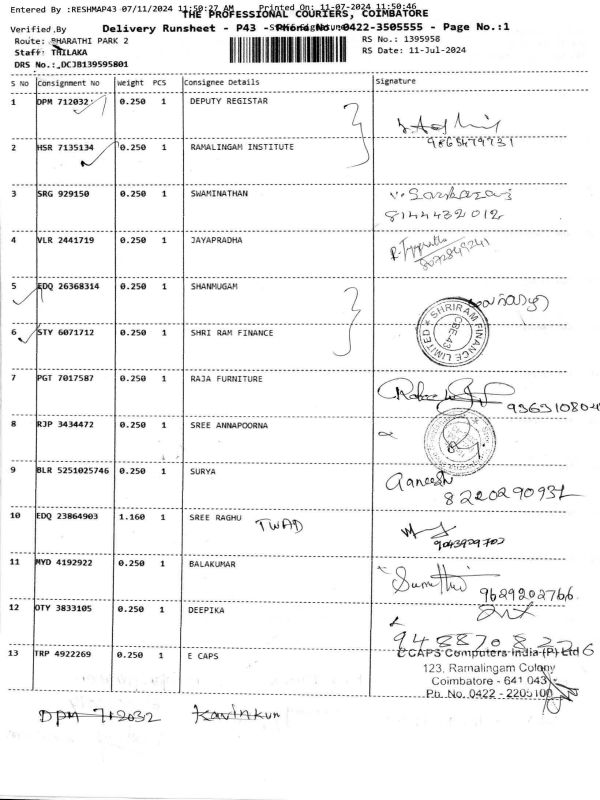 Entered By :RESHMAP43 07/11/2024 11:50:27 AM Printed On: 11-07-2024 11:50:46
THE PROFESSIONAL COURIERS, COIMBATORE
Verified By
Delivery Runsheet - P43 - Phone No.:0422-3505555 - Page No.:1
Route: BHARATHI PARK 2
RS No.: 1395958
Staff: THILAKA
RS Date: 11-Jul-2024
DRS No.: DCJB139595801
S No Consignment No Weight PCS Consignee Details Signature
1 DPM 712032 0.250 1 DEPUTY REGISTAR
9865479731
2 HSR 7135134 0.250 1 RAMALINGAM INSTITUTE
3 SRG 929150 0.250 1 SWAMINATHAN
8144432012
4 VLR 2441719 0.250 1 JAYAPRADHA
8072849241
5 EDQ 26368314 0.250 1 SHANMUGAM
6 STY 6071712 0.250 1 SHRI RAM FINANCE
SHRIRAM FINANCE LIMITED
CBE-43
7 PGT 7017587 0.250 1 RAJA FURNITURE
8 RJP 3434472 0.250 1 SREE ANNAPOORNA
9 BLR 5251025746 0.250 1 SURYA
Ganesh
8220290931
10 EDQ 23864903 1.160 1 SREE RAGHU TWAD
9043929702
11 MYD 4192922 0.250 1 BALAKUMAR
Sumathi 9629202766
12 OTY 3833105 0.250 1 DEEPIKA
9488708276
13 TRP 4922269 0.250 1 E CAPS
E CAPS Computers India (P) Ltd
123, Ramalingam Colony
Coimbatore - 641 043
Ph. No. 0422 - 2205100
DPM 712032 Kavinkun